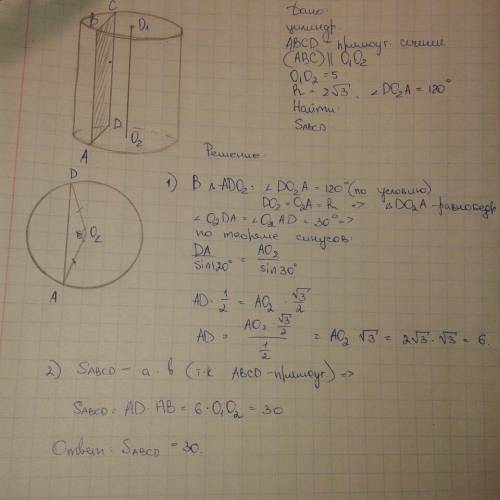 Дано:
цилиндр.
ABCD – прямоуг. сечение
(ABC) || O₁O₂
O₁O₂ = 5
R = 2√3. ∠DO₂A = 120°
Найти:
SABCD
B C
O₁
D
O₂
A
Решение
D
O₂
A
1) В △ADO₂: ∠DO₂A = 120° (по условию)
DO₂ = O₂A = R => △DO₂A – равнобедр
∠O₂DA = ∠O₂AD = 30° =>
по теореме синусов:
DA/sin120° = AO₂/sin30°
AD · 1/2 = AO₂ · √3/2
AD = (AO₂ · √3/2)/(1/2) = AO₂ · √3 = 2√3 · √3 = 6.
2) SABCD – a · в (т.к ABCD – прямоуг) =>
SABCD = AD · AB = 6 · O₁O₂ = 30
Ответ: SABCD = 30.